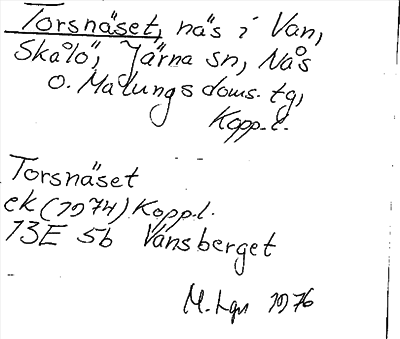 Torsnäset, näs i Van,
Skålö, Järna sn, Nås
o. Malungs doms. tg,
Kopp.l.
Torsnäset
ek (1974) Kopp.l.
13E 5b Vansberget
M. Lgn 1976